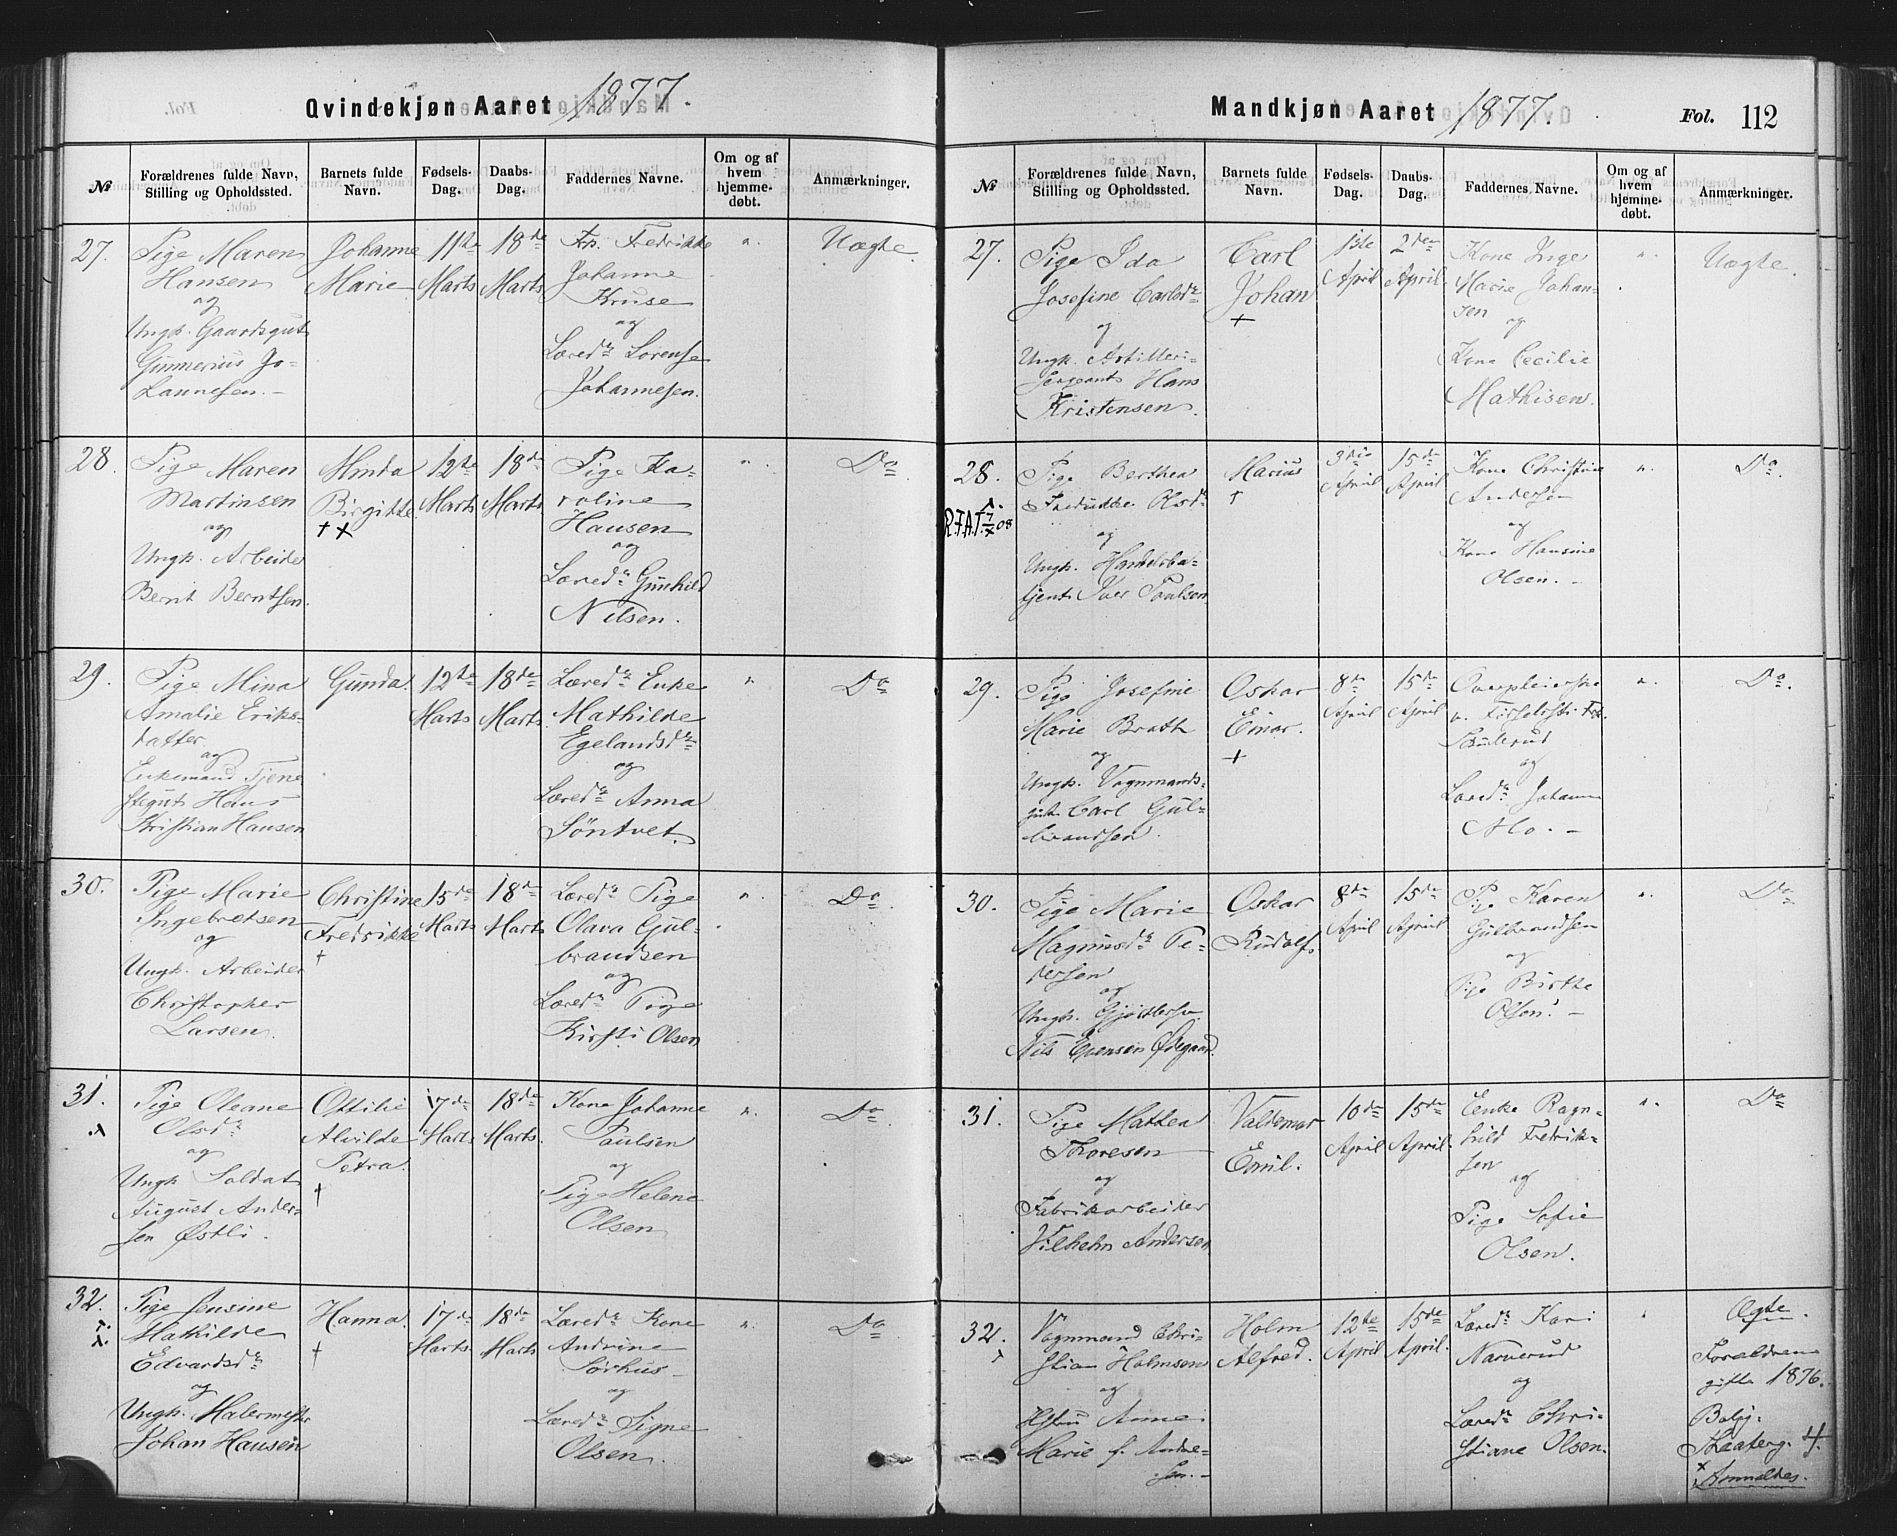 Qvindekjøn Aaret 1877.
№
Forældrenes fulde Navn, Stilling og Opholdssted.
Barnets fulde Navn.
Fødsels-Dag.
Daabs-Dag.
Faddernes Navne.
Om og af hvem hjemme-døbt.
Anmærkninger.
27.
Pige Maren
Hansen
og
Ungk. Gaardsgut
Gunnerius Jo-
hannesen.
Johanne
Marie
11te
Marts
18de
Marts
Fr. Fredrikke
Johanne
Kruse
og
Læred. Lorense
Johannesen.
"
Uægte.
28.
Pige Maren
Martinsen
og
Ungk. Arbeider
Bernt Berntsen.
Minda
Birgitte
† x
12te
Marts
18de
Marts
Pige Ka-
roline
Hansen
og
Læred. Gunhild
Nilsen.
"
Do
29.
Pige Mina
Amalie Eriks-
datter
og
Enkemand Tjene
stegut Hans
Kristian Hansen
Gunda.
12te
Marts
18de
Marts
Læred. Enke
Mathilde
Egelandsdr
og
Læred. Anna
Söntvet.
"
Do
30.
Pige Marie
Ingebretsen
og
Ungk. Arbeider
Christopher
Larsen.
Christine
Fredrikke
†
15de
Marts
18de
Marts
Læred. Pige
Olava Gul-
brandsen
og
Læred. Pige
Kirsti Olsen
"
Do
31.
x
Pige Oleane
Olsdr
og
Ungk. Soldat
August Ander-
sen Østli.
Ottilie
Alvilde
Petra.
†
17de
Marts
18de
Marts.
Kone Johanne
Paulsen
og
Pige Helene
Olsen
"
Do
32.
Pige Jensine
Mathilde
Edvardsdr
og
Ungk. Malermester
Johan Hansen
Hanna.
†
17de
Marts.
18de
Marts
Læred. Kone
Andrine
Sörhus
og
Læred. Signe
Olsen.
"
Do
Mandkjøn Aaret 1877.
Fol. 112
№
Forældrenes fulde Navn, Stilling og Opholdssted.
Barnets fulde Navn.
Fødsels-Dag.
Daabs-Dag.
Faddernes Navne.
Om og af hvem hjemme-døbt.
Anmærkninger.
27.
Pige Ida
Josefine Carlsdr
og
Ungk. Artilleri-
sergeant Hans
Kristensen.
Carl
Johan
+
1ste
April
2den
April
Kone Inge
Marie Johan-
sen
og
Kone Cecilie
Mathisen.
"
Uægte.
28.
R.F.A.T. 7/x 08
Pige Berthea
Fredrikke Olsdr
og
Ungk. Handelsbe-
tjent Iver Paulsen
Marius
†
3die
April
15de
April
Kone Christine
Andersen
og
Kone Hansine
Olsen.
"
Do.
29.
Pige Josefine
Marie Brath
og
Ungk. Vognmands-
gut Carl Gul-
brandsen.
Oskar
Einar.
+
8de
April
15de
April
og
Læred. Johanne
Mo.
"
Do.
30.
Pige Marie
Magnusdr Pe-
dersen
og
Ungk.
Nils Evensen Ødegaard.
Oskar
Rudolf
8de
April
15de
April
Pige Karen
Gulbrandsen
og
Pige Birthe
Olsen.
"
Do
31.
Pige Mathea
Thoresen
og
Fabrikarbeider
Vilhelm Andersen
Valdemar
Emil.
10de
April
15de
April.
Enke Ragn-
hild Fredrik-
sen
og
Pige Sofie
Olsen.
"
Do
32.
Vognmand Chri-
stian Holmsen
og
Hustru Anne
Marie f. Andre-
sen.
Holm
Alfred.
12te
April
15de
April.
Læred. Kari
Narverud
og
Læred. Chri-
stiane Olsen.
Ægte.
Forældrene
gifte 1876.
Bolig.
4.
Anmeldes.